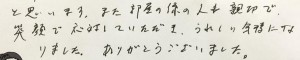 と思います。また部屋の係の人も親切で、
笑顔で応対していただき、うれしい気持にな
りました。ありがとうございました。